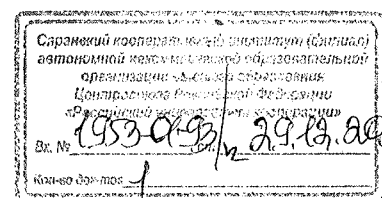 Саранский кооперативный институт (филиал)
автономной некоммерческой образовательной
организации высшего образования
Центросоюза Российской Федерации
«Российский университет кооперации»
Вх. № 29.12.20
Кол-во док-тов 1